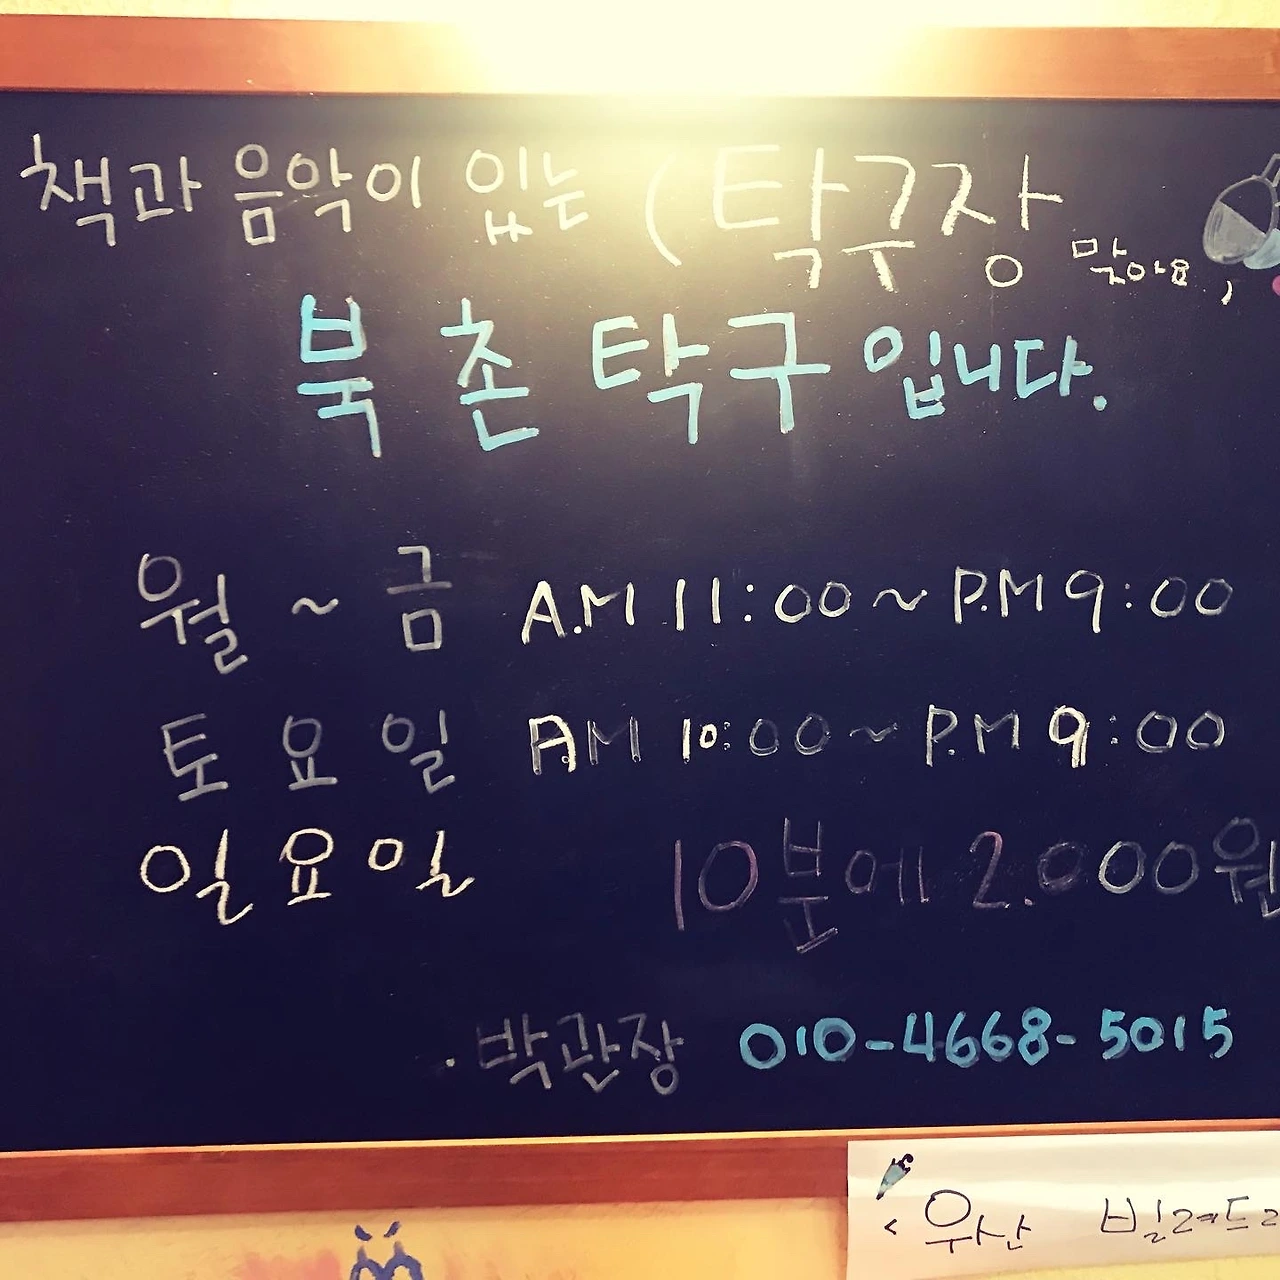 책과 음악이 있는 (탁구장 맞아요,
북촌탁구입니다.
월 ~ 금 A.M 11:00 ~ P.M 9:00
토요일 A.M 10:00 ~ P.M 9:00
일요일 10분에 2.000원
. 박관장 010-4668-5015
< 우산 빌려드